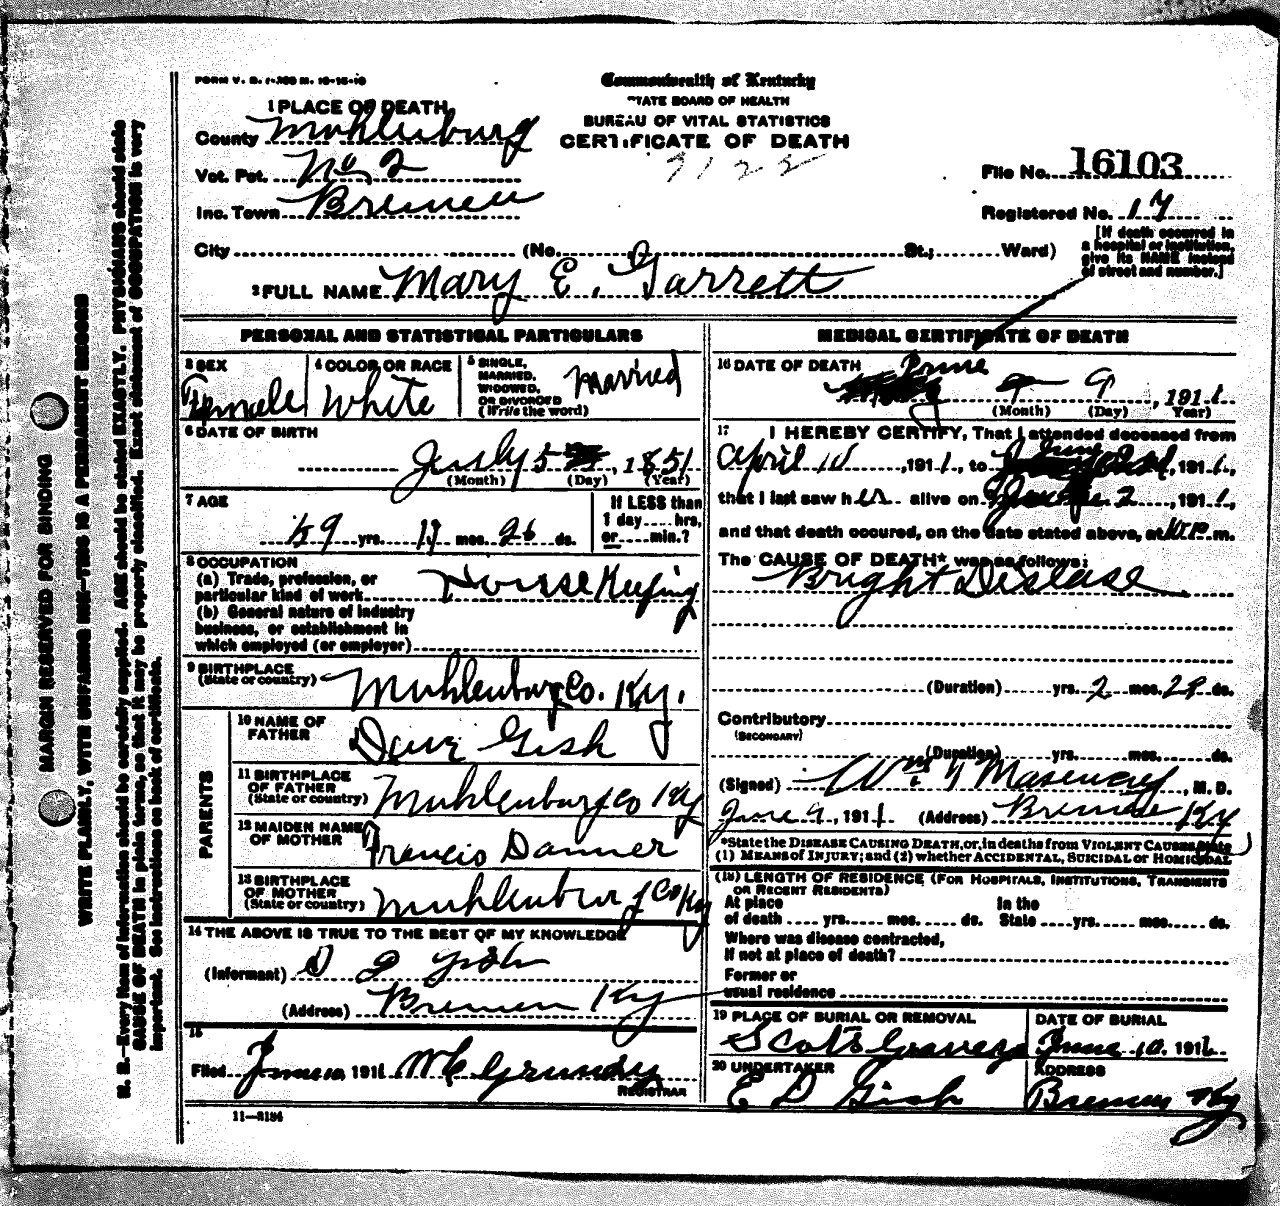 FORM V. S. 1-200 M. 10-15-10
Commonwealth of Kentucky
STATE BOARD OF HEALTH
BUREAU OF VITAL STATISTICS
CERTIFICATE OF DEATH
7122
1 PLACE OF DEATH
County Muhlenburg
Vot. Pct. No 2
Inc. Town Bremen
City (No. St.; Ward)
File No. 16103
Registered No. 17
[If death occurred in
a hospital or institution,
give its NAME instead
of street and number.]
2 FULL NAME Mary E. Garrett
PERSONAL AND STATISTICAL PARTICULARS
3 SEX
Female
4 COLOR OR RACE
White
5 SINGLE,
MARRIED,
WIDOWED,
OR DIVORCED
(Write the word)
Married
6 DATE OF BIRTH
July 5, 1851
(Month) (Day) (Year)
7 AGE
59 yrs. mos. 26 ds.
If LESS than
1 day.... hrs,
or.... min.?
8 OCCUPATION
(a) Trade, profession, or
particular kind of work House Keeping
(b) General nature of industry
business, or establishment in
which employed (or employer)
9 BIRTHPLACE
(State or country) Muhlenburg Co. Ky.
PARENTS
10 NAME OF
FATHER Dave Gish
11 BIRTHPLACE
OF FATHER
(State or country) Muhlenburg Co Ky
12 MAIDEN NAME
OF MOTHER Francis Danner
13 BIRTHPLACE
OF MOTHER
(State or country) Muhlenburg Co Ky
14 THE ABOVE IS TRUE TO THE BEST OF MY KNOWLEDGE
(Informant) Gish
(Address) Bremen Ky
15
Filed June 10 1911 Grundy
REGISTRAR
11-3184
MEDICAL CERTIFICATE OF DEATH
16 DATE OF DEATH June
9, 1911
(Month) (Day) (Year)
17 I HEREBY CERTIFY, That I attended deceased from
April 10, 1911, to June, 1911,
that I last saw her alive on June 2, 1911,
and that death occured, on the date stated above, at m.
The CAUSE OF DEATH* was as follows:
Bright Disease
(Duration) yrs. 2 mos. 28 ds.
Contributory
(SECONDARY)
(Duration) yrs. mos. ds.
(Signed) Wm, M. D.
June 9, 1911 (Address) Bremen Ky
*State the DISEASE CAUSING DEATH, or, in deaths from VIOLENT CAUSES, state
(1) MEANS OF INJURY; and (2) whether ACCIDENTAL, SUICIDAL or HOMICIDAL
(18) LENGTH OF RESIDENCE (FOR HOSPITALS, INSTITUTIONS, TRANSIENTS
OR RECENT RESIDENTS)
At place In the
of death .... yrs. .... mos. .... ds. State .... yrs. .... mos. .... ds.
Where was disease contracted,
If not at place of death?
Former or
usual residence
19 PLACE OF BURIAL OR REMOVAL
Scotts Graveyard
DATE OF BURIAL
June 10, 1911
20 UNDERTAKER
E D Gish
ADDRESS
Bremen Ky
MARGIN RESERVED FOR BINDING
WRITE PLAINLY, WITH UNFADING INK—THIS IS A PERMANENT RECORD
N. B.—Every item of information should be carefully supplied. AGE should be stated EXACTLY. PHYSICIANS should state
CAUSE OF DEATH in plain terms, so that it may be properly classified. Exact statement of OCCUPATION is very
important. See instructions on back of certificate.